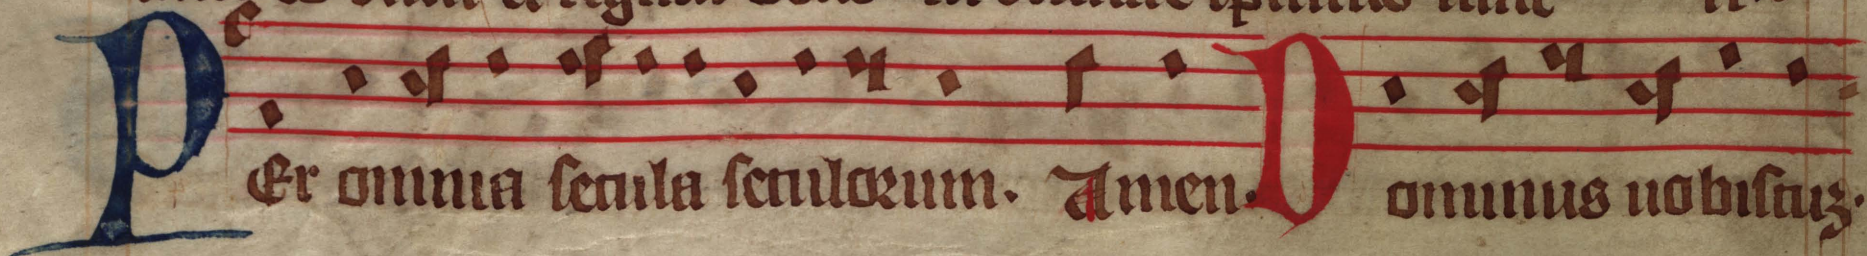 PEr omnia secula seculorum. Amen. Dominus uobiscuz.